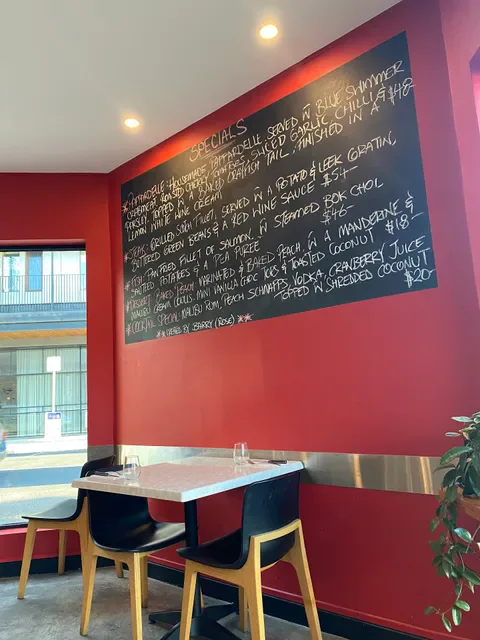 SPECIALS
*PAPPARDELLE: HOUSEMADE PAPPARDELLE SERVED W BLUE SWIMMER
CRABMEAT, ROASTED CHERRY TOMATOES, SLICED GARLIC, CHILLI &
PARSLEY. TOPPED W A BAKED CRAYFISH TAIL. FINISHED IN A $48-
LEMON WHITE WINE CREAM
*STEAK: GRILLED 300GM FILLET, SERVED W A POTATO & LEEK GRATIN,
BUTTERED GREEN BEANS & A RED WINE SAUCE $54-
*FISH: PAN FRIED FILLET OF SALMON, W STEAMED BOK CHOI,
SAUTEED POTATOES & A PEA PUREE $46-
*DESSERT: BAKED PEACH MARINATED & BAKED PEACH, W A MANDERINE &
MALIBU CREAM, COULIS, MINI VANILLA CHOC TOPS & TOASTED COCONUT $18-
*COCKTAIL SPECIAL: MALIBU RUM, PEACH SCHNAPPS, VODKA, CRANBERRY JUICE
TOPPED W SHREDDED COCONUT $20-
** BY BARRY (ROSE) **